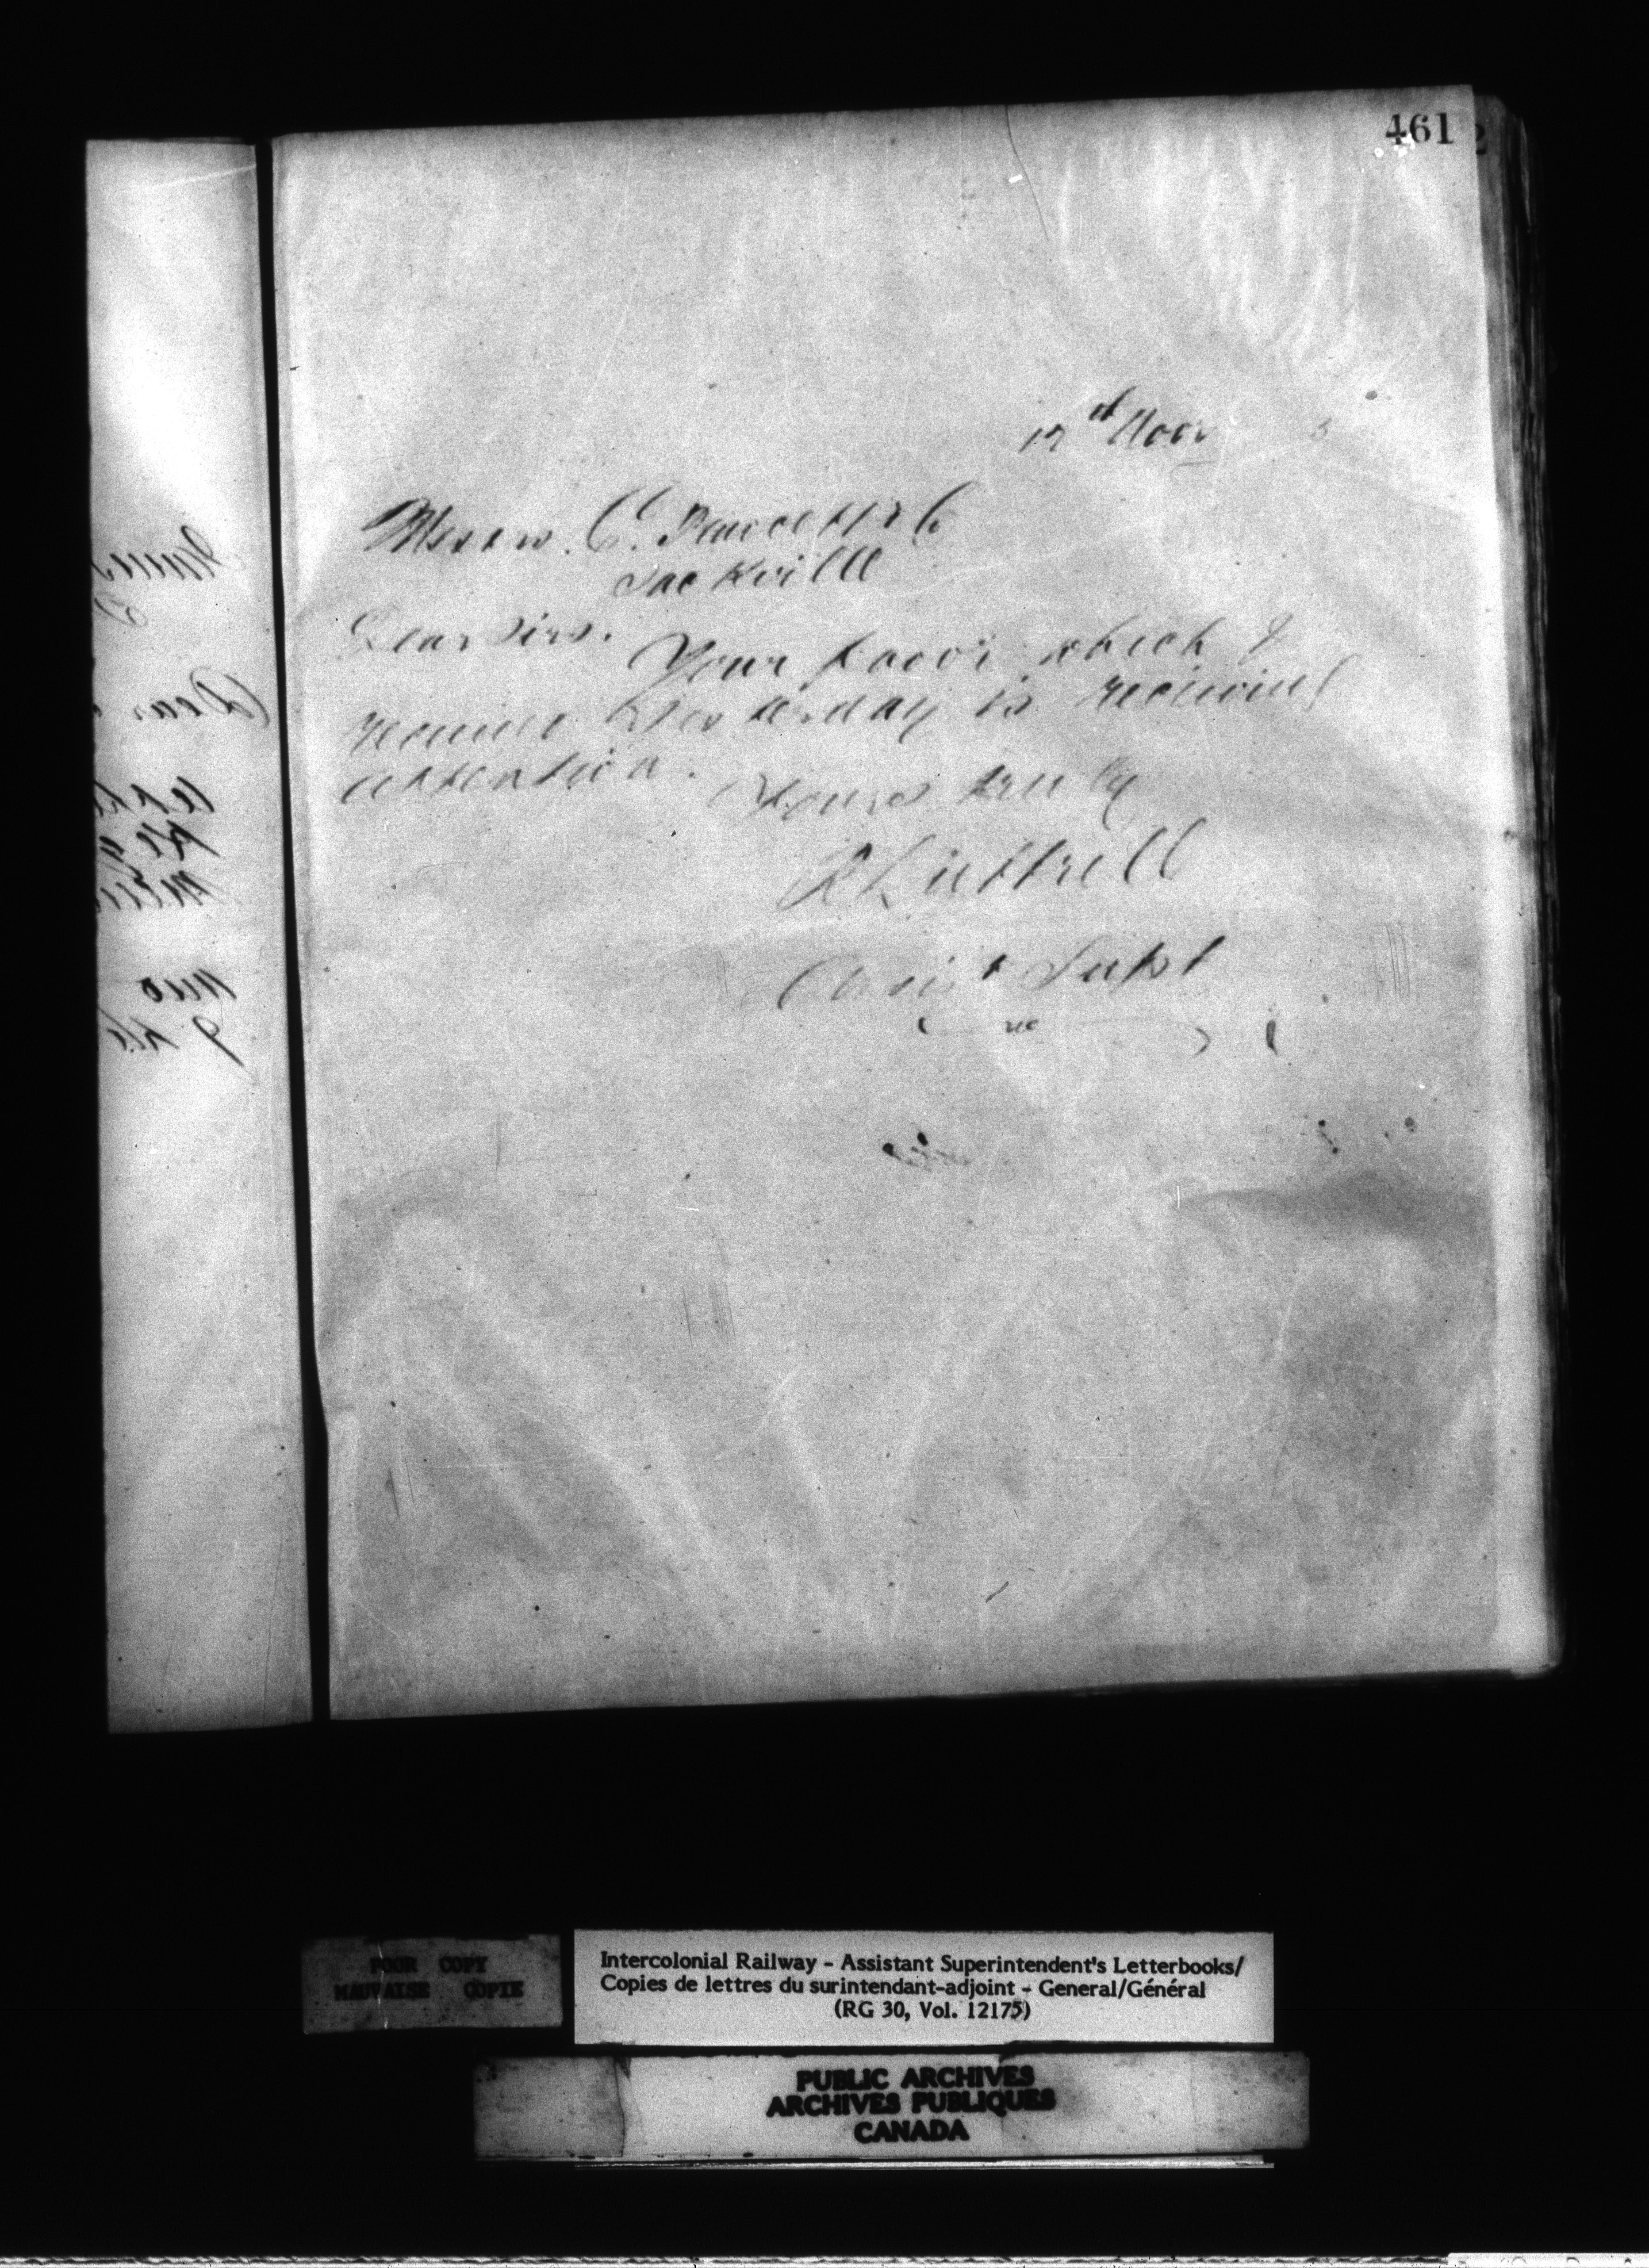 461
Nov 3
Messrs. C. Fawcett & Co
Sackville
Dear Sirs.
Your favor which I
received yesterday is receiving
attention.
Yours truly
R Luttrell
Assist Supt
POOR COPY
MAUVAISE COPIE
Intercolonial Railway - Assistant Superintendent's Letterbooks/
Copies de lettres du surintendant-adjoint - General/Général
(RG 30, Vol. 12175)
PUBLIC ARCHIVES
ARCHIVES PUBLIQUES
CANADA